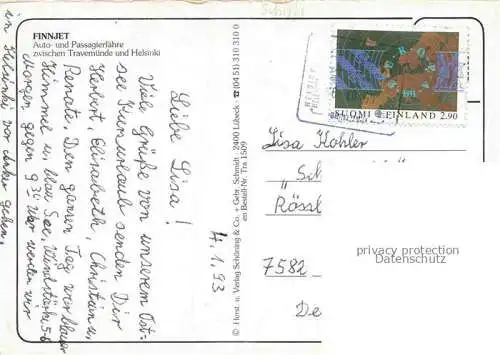 FINNJET
Auto- und Passagierfähre
zwischen Travemünde und Helsinki
4.1.93
Liebe Lisa!
Viele Grüße von unserem Ost-
see Kurzurlaub senden Dir
Herbert, Elisabeth, Christein u,
Renate. Den ganzen Tag war blauer
Himmel u, blau See, Windstärke 5-6
Morgen gegen 9³⁰ Uhr werden wir
in Helsinki vor Anker gehen.
© Horst u. Verlag Schöning & Co. - Gebr. Schmidt · 2400 Lübeck · ☎ (0451) 310 310 0
en Bestell-Nr. Tra 1509
EUROPA
SUOMI FINLAND 2,90
Lisa Kohler
„Sch
Rössl
7582
De
privacy protection
Datenschutz